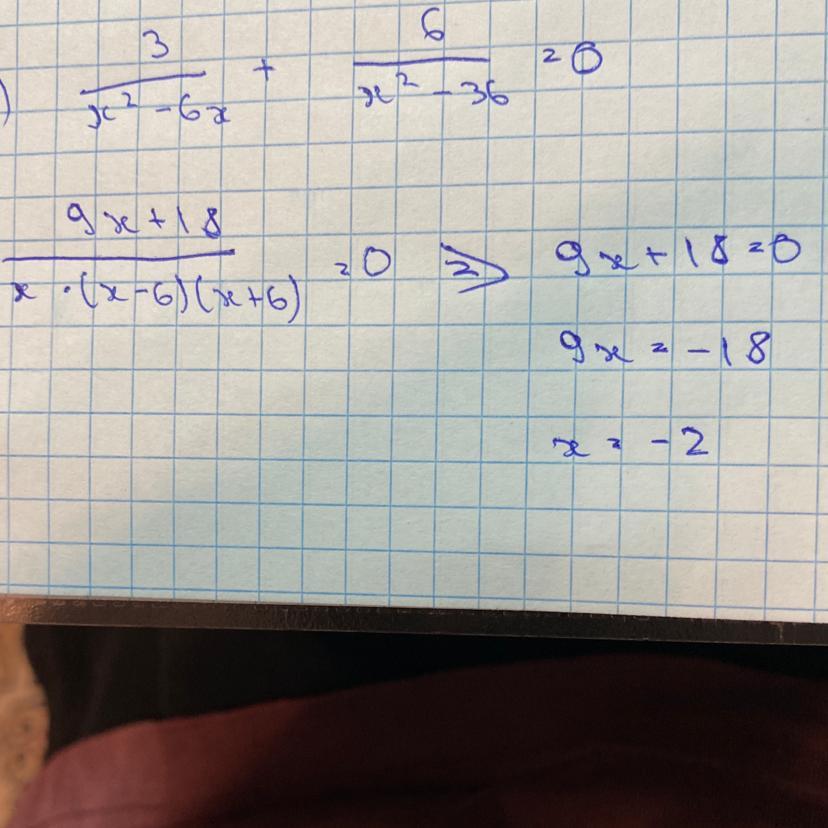 ) 3/(x² - 6x) + 6/(x² - 36) = 0
(9x + 18)/(x · (x - 6)(x + 6)) = 0 => 9x + 18 = 0
9x = -18
x = -2